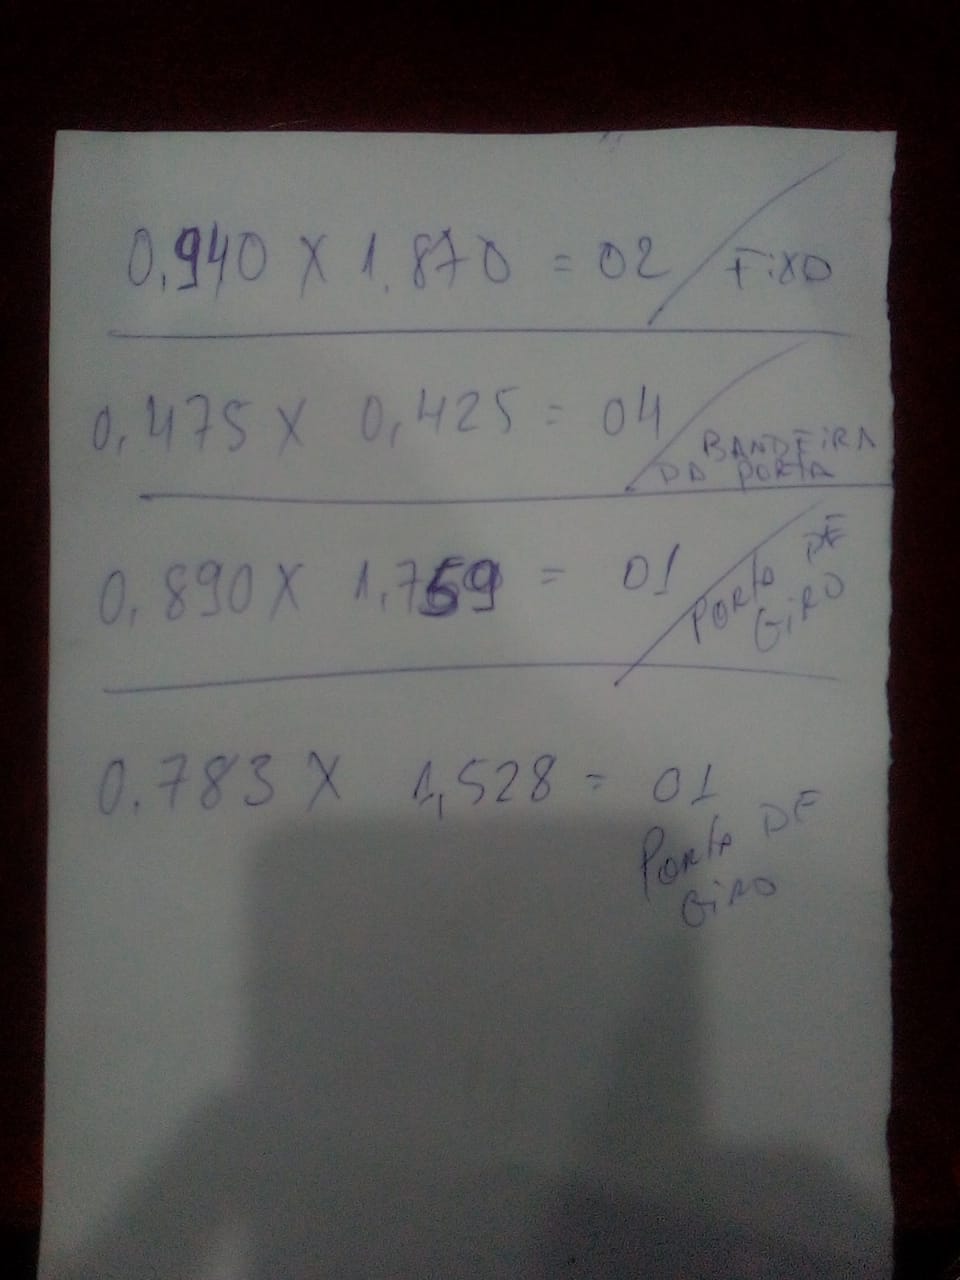 0,940 X 1.870 = 02 / FiXO
0,475 X 0,425 = 04 / BANDEiRA
DA PORTA
0,890 X 1,759 = 01 / PORTA DE
GiRO
0.783 X 1,528 = 01
PORTA DE
GiRO